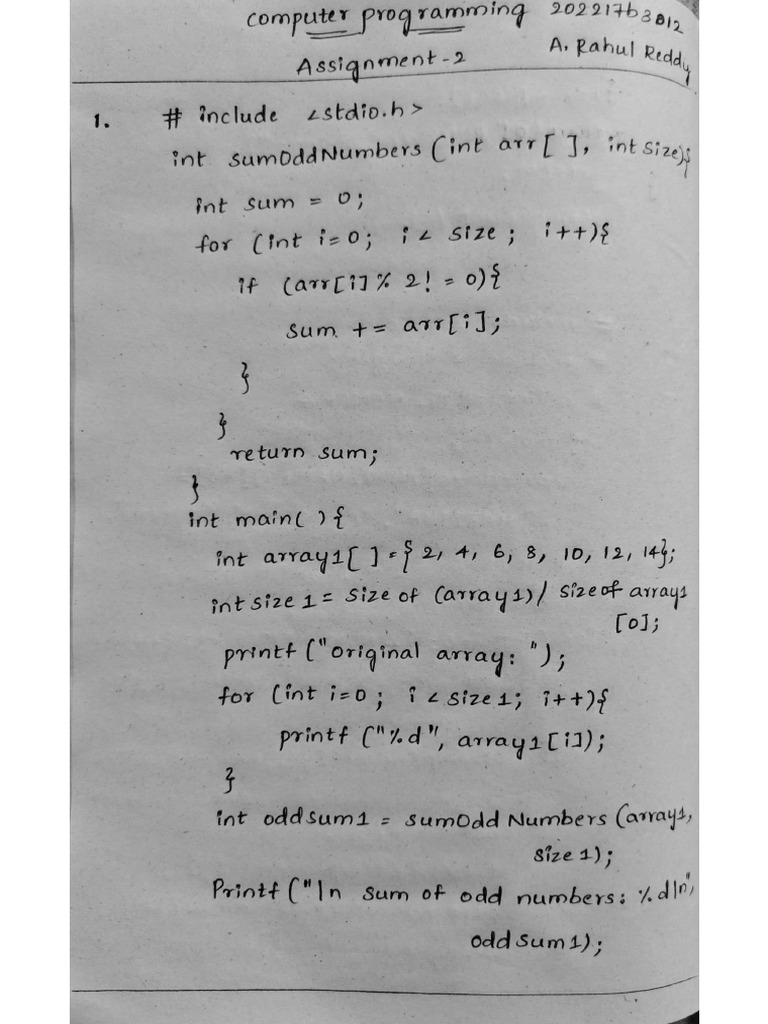 Computer programming 202217b3812
Assignment-2 A. Rahul Reddy
1. # include <stdio.h>
int sumOddNumbers (int arr[ ], int size){
int sum = 0;
for (int i=0; i < size; i++){
if (arr[i] % 2! = 0){
sum += arr[i];
}
}
return sum;
}
int main( ){
int array1[ ] = { 2, 4, 6, 8, 10, 12, 14};
int size 1 = size of (array1) / size of array1
[0];
printf ("original array: ");
for (int i=0; i < size 1; i++){
printf ("%d", array1[i]);
}
int oddsum1 = sumOdd Numbers (array1,
size 1);
Printf ("\n sum of odd numbers: %d\n",
odd sum1);